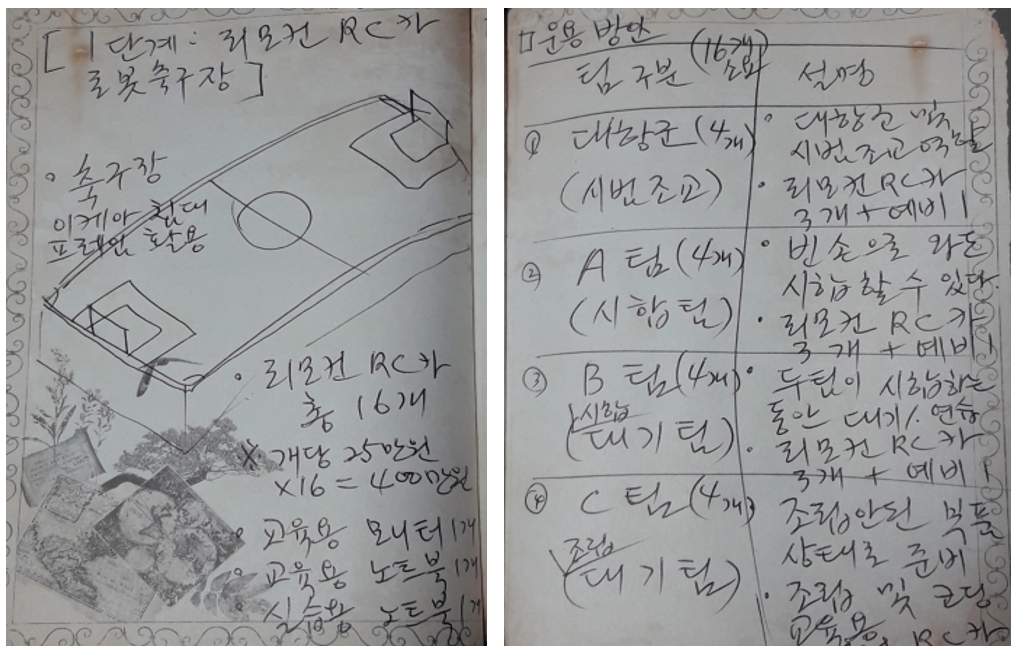 [ 1단계: 리모컨 RC카
로봇축구장 ]
• 축구장
이케아 침대
프레임 활용
• 리모컨 RC카
총 16개
※ 개당 25만원
×16 = 400만원
• 교육용 모니터 1개
• 교육용 노트북 1개
• 실습용 노트북 1개
□ 운용 방안
팀 구분 (16개 소요) 설명
① 대항군 (4개) • 대항군 및
시범조교 역할
(시범조교) • 리모컨 RC카
3개 + 예비 1
② A 팀 (4개) • 빈손으로 와도
시합할 수 있다.
(시합팀) • 리모컨 RC카
3개 + 예비 1
③ B 팀 (4개) • 두팀이 시합하는
동안 대기/연습
(시합 대기팀) • 리모컨 RC카
3개 + 예비 1
④ C 팀 (4개) • 조립안된 부품
상태로 준비
(조립 대기팀) • 조립 및 코딩
교육용 RC카